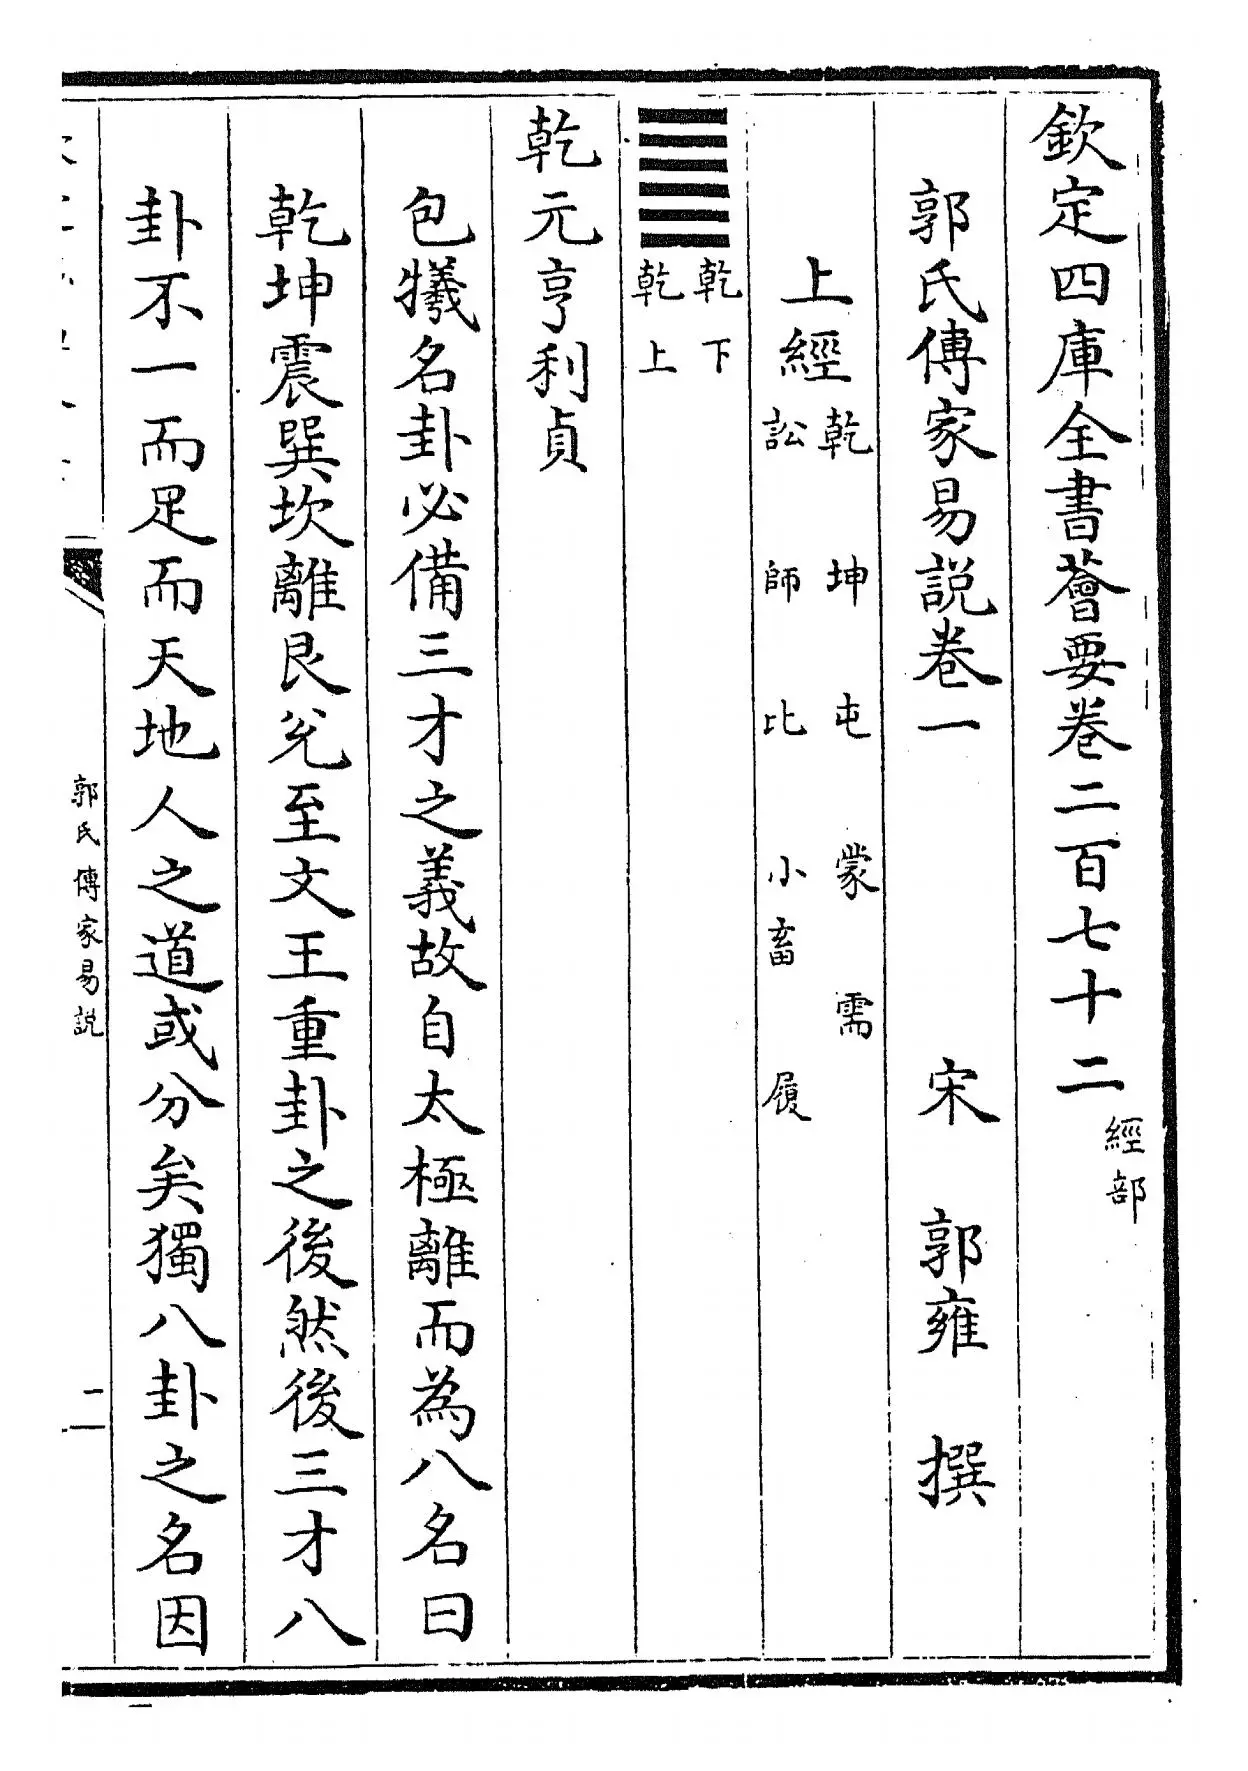 欽定四庫全書薈要卷二百七十二 經部
郭氏傳家易説卷一 宋 郭雍 撰
上經 乾 坤 屯 蒙 需
訟 師 比 小畜 履
乾下
乾上
乾元亨利貞
包犧名卦必備三才之義故自太極離而為八名曰
乾坤震巽坎離艮兊至文王重卦之後然後三才八
卦不一而足而天地人之道或分矣獨八卦之名因
郭氏傳家易説
二